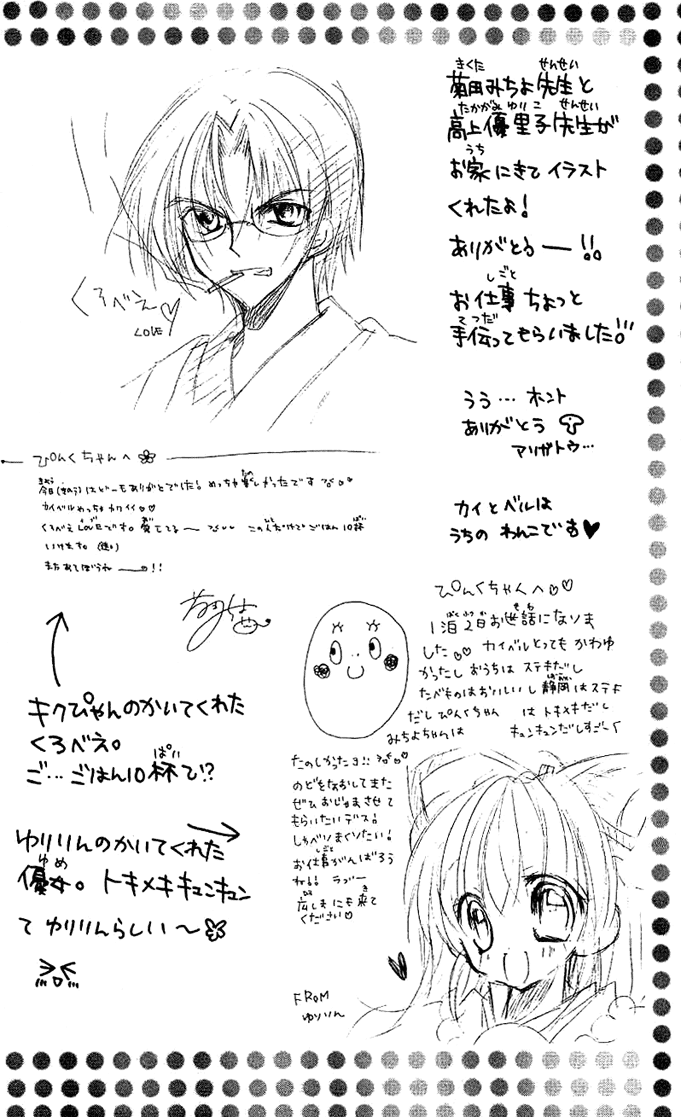 菊田みちよ先生と
高上優里子先生が
お家にきてイラスト
くれたよ!
ありがとうー!!
お仕事ちょっと
手伝ってもらいました!!
うう…ホント
ありがとう
アリガトウ…
カイとベルは
うちのわんこです♥
くろべえ♡
LOVE
ぴんくちゃんへ
今日(きのう)はどーもありがとでした!めっちゃ楽しかったです
カイベルめっちゃカワイイ♡♡
くろべえLoveです。愛してる〜 ごはん10杯
いけます。
またあそぼうね ー!!
キクぴゃんのかいてくれた
くろべえ。
ご…ごはん10杯で!?
ゆりりんのかいてくれた
優女。トキメキキュンキュン
でゆりりんらしい〜
ぴんくちゃんへ♡♡
1泊2日お世話になりま
した♡♡ カイベルとってもかわゆ
かったしおうちはステキだし
たべものはおいしいし静岡はステキ
だしぴんくちゃんはトキメキだし
みちよちゃんはキュンキュンだしすご〜く
たのしかったヨ!!
のどをなおしてまた
ぜひおじゃまさせて
もらいたいデス!
しゃべりまくりたい!
お仕事がんばろう
ね!! ラブー
広しまにも来て
ください♡
FROM
ゆりりん